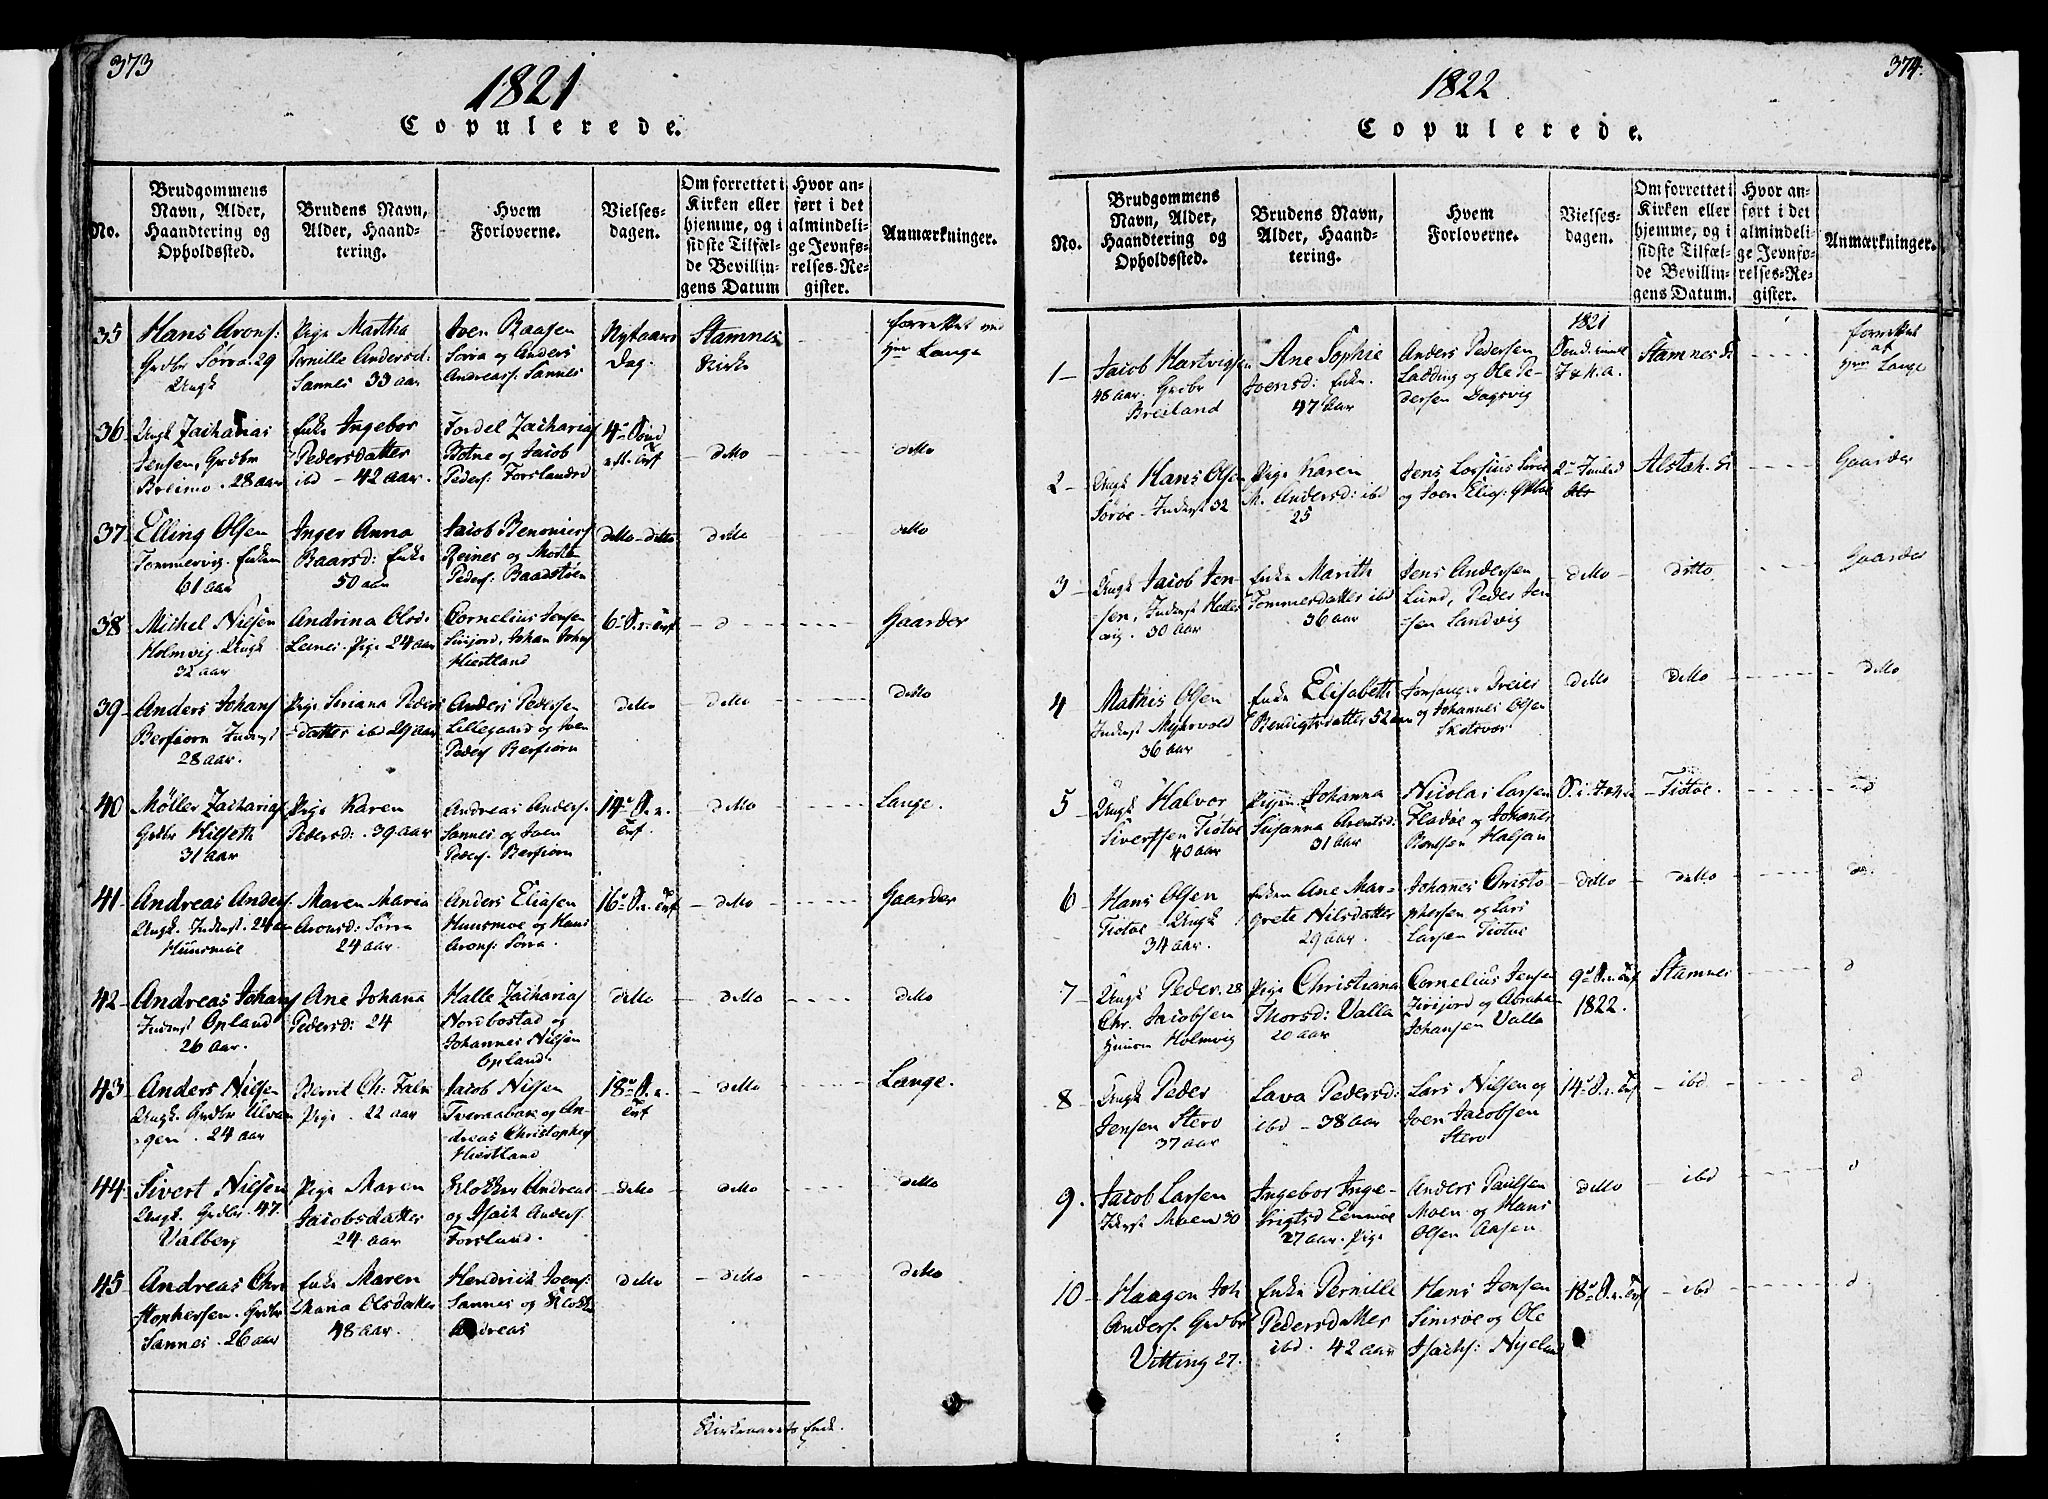 373
1821
Copulerede.
No.
Brudgommens Navn, Alder, Haandtering og Opholdssted.
Brudens Navn, Alder, Haandtering.
Hvem Forloverne.
Vielsesdagen.
Om forrettet i Kirken eller hjemme, og i sidste Tilfælde Bevillingens Datum
Hvor anført i det almindelige Jevnførelses-Register.
Anmærkninger.
35
Hans Arons:
Grdbr Sørra. 29
Ungk
Pige Martha
Pernilla Andersd:
Sannes 33 aar
Iver Raasen
Sørra og Anders
Andreass: Sannes
Nytaars
Dag.
Stamnes
Kirke
forrettet ved
Hr Lange
36
Ungk Zacharias
Jensen, Grdbr
Breimo. 28 aar
Enke Ingebor
Pedersdatter
ibd - 42 aar.
Fordel Zacharias
Botne og Jacob
Peders: Forsland
4de Sønd
detto
detto
37
Elling Olsen
Tommervig. Enkem
61 aar
Inger Anna
Baarsd: Enke
50 aar
Jacob Benonies
Reines og Morten
Peders: Baadstøen
detto - detto
detto
detto
38
Michel Nilsen
Holmvig. Ungk
32 aar
Andrina Olsd.
Leines. Pige 24 aar
Cornelius Jensen
Sirijord, Johan Johns
Hiestland
6te S. e. Trf
d
Gaarder
39
Anders Johans
Berfiørn Inderst
28 aar.
Pige Siriana Peders
datter ibd 29 aar
Anders Pedersen
Lillegaard og Iver
Peders Berfiørn
detto
detto
detto
40
Møller Zacharias
Grdbr Hilseth
31 aar
Pige Karen
Pedersd: 39 aar
Andreas Anders.
Sannes og Iver
Peders. Berfiørn
14de S. e.
Trf.
detto
Lange.
41
Andreas Anders.
Ungk. Inderst. 24 aar
Huusmoe
Maren Maria
Aronsd: Sørra
24 aar
Anders Eliasen
Huusmoe og Hans
Arons: Sørra.
16de S. e. Trf
detto
Gaarder
42
Andreas Johans
Inderst Opland
26 aar.
Ane Johana
Pedersd: 24
Halle Zacharias
Nordbostad og
Johannes Nilsen
Opland.
detto
detto
detto
43
Anders Nilsen
Ungk. Grdbr Ulvan
gen. 24 aar
Birrit Ch: Falk
Pige. 22 aar
Jacob Nilsen
Tveraabak og An-
dreas Christophers
Hiestland
18de S. e.
Trf
detto
Lange.
44
Sivert Nilsen
Ungk. Grdbr. 47.
Valberg
Pige Maren
Jacobsdatter
24 aar
Klokker Andreas
og Isach Anders.
Forsland.
detto
detto
detto
45
Andreas Chri
stophersen. Grdbr
Sannes. 26 aar
Enke Maren
Maria Olsdatter
48 aar.
Hendrich Ivers:
Sannes og Klokker
Andreas
detto
detto
detto
Kirkeaarets Ende.
374.
1822
Copulerede.
No.
Brudgommens Navn, Alder, Haandtering og Opholdssted.
Brudens Navn, Alder, Haandtering.
Hvem Forloverne.
Vielsesdagen.
Om forrettet i Kirken eller hjemme, og i sidste Tilfælde Bevillingens Datum.
Hvor anført i det almindelige Jevnførelses-Register.
Anmærkninger.
1
Jacob Hartvigsen
48 aar. Grdbr
Breiland
Ane Sophie
Iversd: Enke.
47 aar
Anders Pedersen
Ladding og Ole Pe-
dersen Dagsvig
1821
Stamnes K.
forrettet
af
Hr Lange
2
Ungk Hans Olsen
Sørøe - Inderst 32
Pige Karen
M. Andersd: ibd
25
og Iver Elies:
Alstah. K
Gaarder
3
Ungk Jacob Jen-
sen, Inderst
vig. 30 aar
Enke Marith
Tommesdatter ibd
36 aar
Jens Andersen
Lund, Peder Jen
sen Sandvig
detto
ditto
Gaarder
4
Mathis Olsen
Inderst Myhrvold
36 aar
Enke Elisabeth
Bendigtsdatter 52 aar
og Johannes Olsen
Skotsvær
detto
detto
detto
5
Ungk Halvor
Sivertsen Tiøtøe
40 aar
Pigen Johanna
Susanna Arentsd:
31 aar
Nicolai Larsen
Fladøe og Johannes
Bentsen Halsan
Tiøtøe
d
6
Hans Olsen
Tiøtøe Ungk
34 aar.
Enken Ane Mar-
grete Nilsdatter
29 aar.
Johannes Cristo
phersen og Lars
Larsen Tiøtøe
detto
detto
d
7
Ungk Peder. 28
Chr. Jacobsen
Holmvig
Pige Christiana
Thorsd: Valla
20 aar
Cornelius Jensen
Zirijord og Abraham
Johansen Valla
9de S. e. Trf
1822.
Stamnes
d
8
Ungk Peder
Jensen Stero
37 aar
Lava Pedersd:
ibd - 38 aar
Lars Nilsen og
Iver Jacobsen
Stero
14de S. e. Trf
ibd
d
9.
Jacob Larsen
Inderst Moen 30
Ingebor Inge-
brigtsd
27 aar. Pige
Anders Paulsen
Moen og Hans
Olsen Aasen
detto
ibd
d
10
Haagen Joh
Anders. Grdbr
Vitting 27.
Enke Pernille
Pedersdatter
ibd. 42 aar
Hans Jensen
Simsøe og Ole
Isachs: Nyeland
18de S. e. Trf
ibd
d